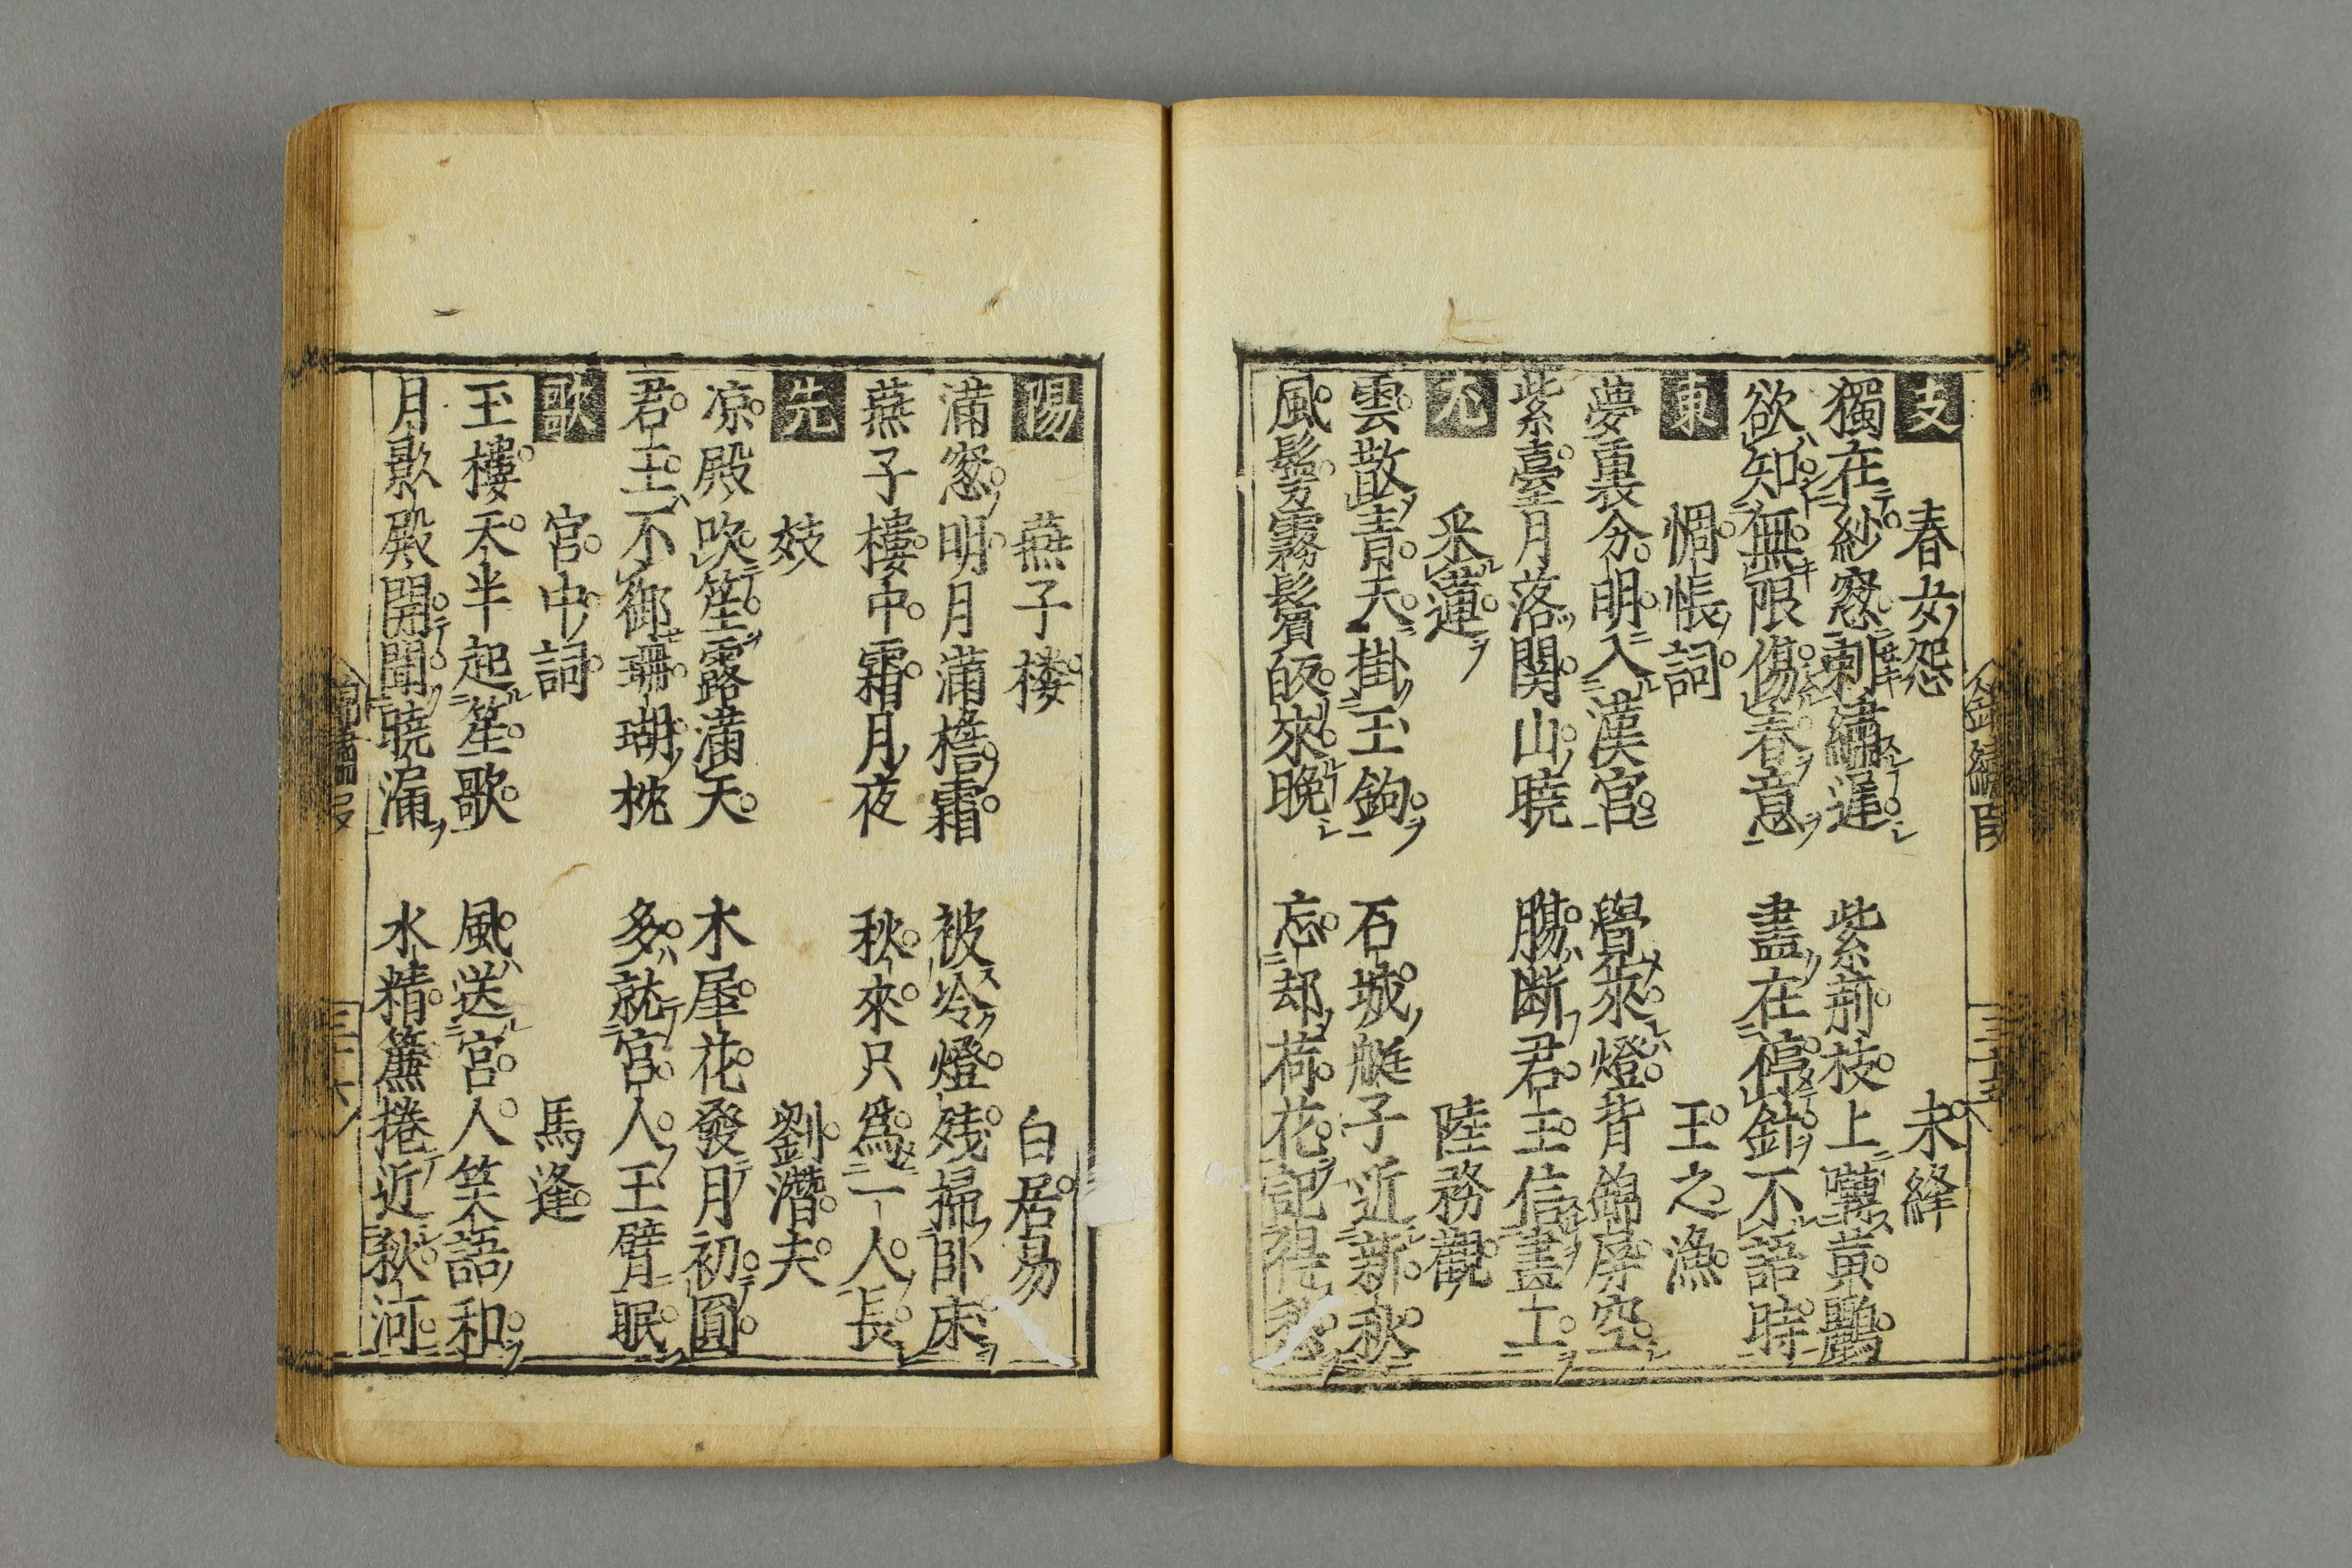 支　春女怨　朱絳
獨在紗窓刺繡遲　紫荊枝上囀黃鸝
欲知無限傷春意　盡在停針不語時
東　惆悵詞　王之渙
夢裏分明入漢宮　覺來燈背錦屏空
紫臺月落関山曉　腸断君王信畫工
尤　采蓮　陸務觀
雲散青天掛玉鉤　石城艇子近新秋
風鬟霧鬢皈來晚　忘却荷花記得愁
陽　燕子楼　白居易
滿窓明月滿檐霜　被冷燈残掃卧床
燕子樓中霜月夜　秋來只爲一人長
先　妓　劉潛夫
凉殿吹笙露滿天　木屋花發月初圓
君王不御珊瑚枕　多就宮人玉臂眠
歌　宮中詞　馬逢
玉樓天半起笙歌　風送宮人笑語和
月影殿開聞曉漏　水精簾捲近秋河